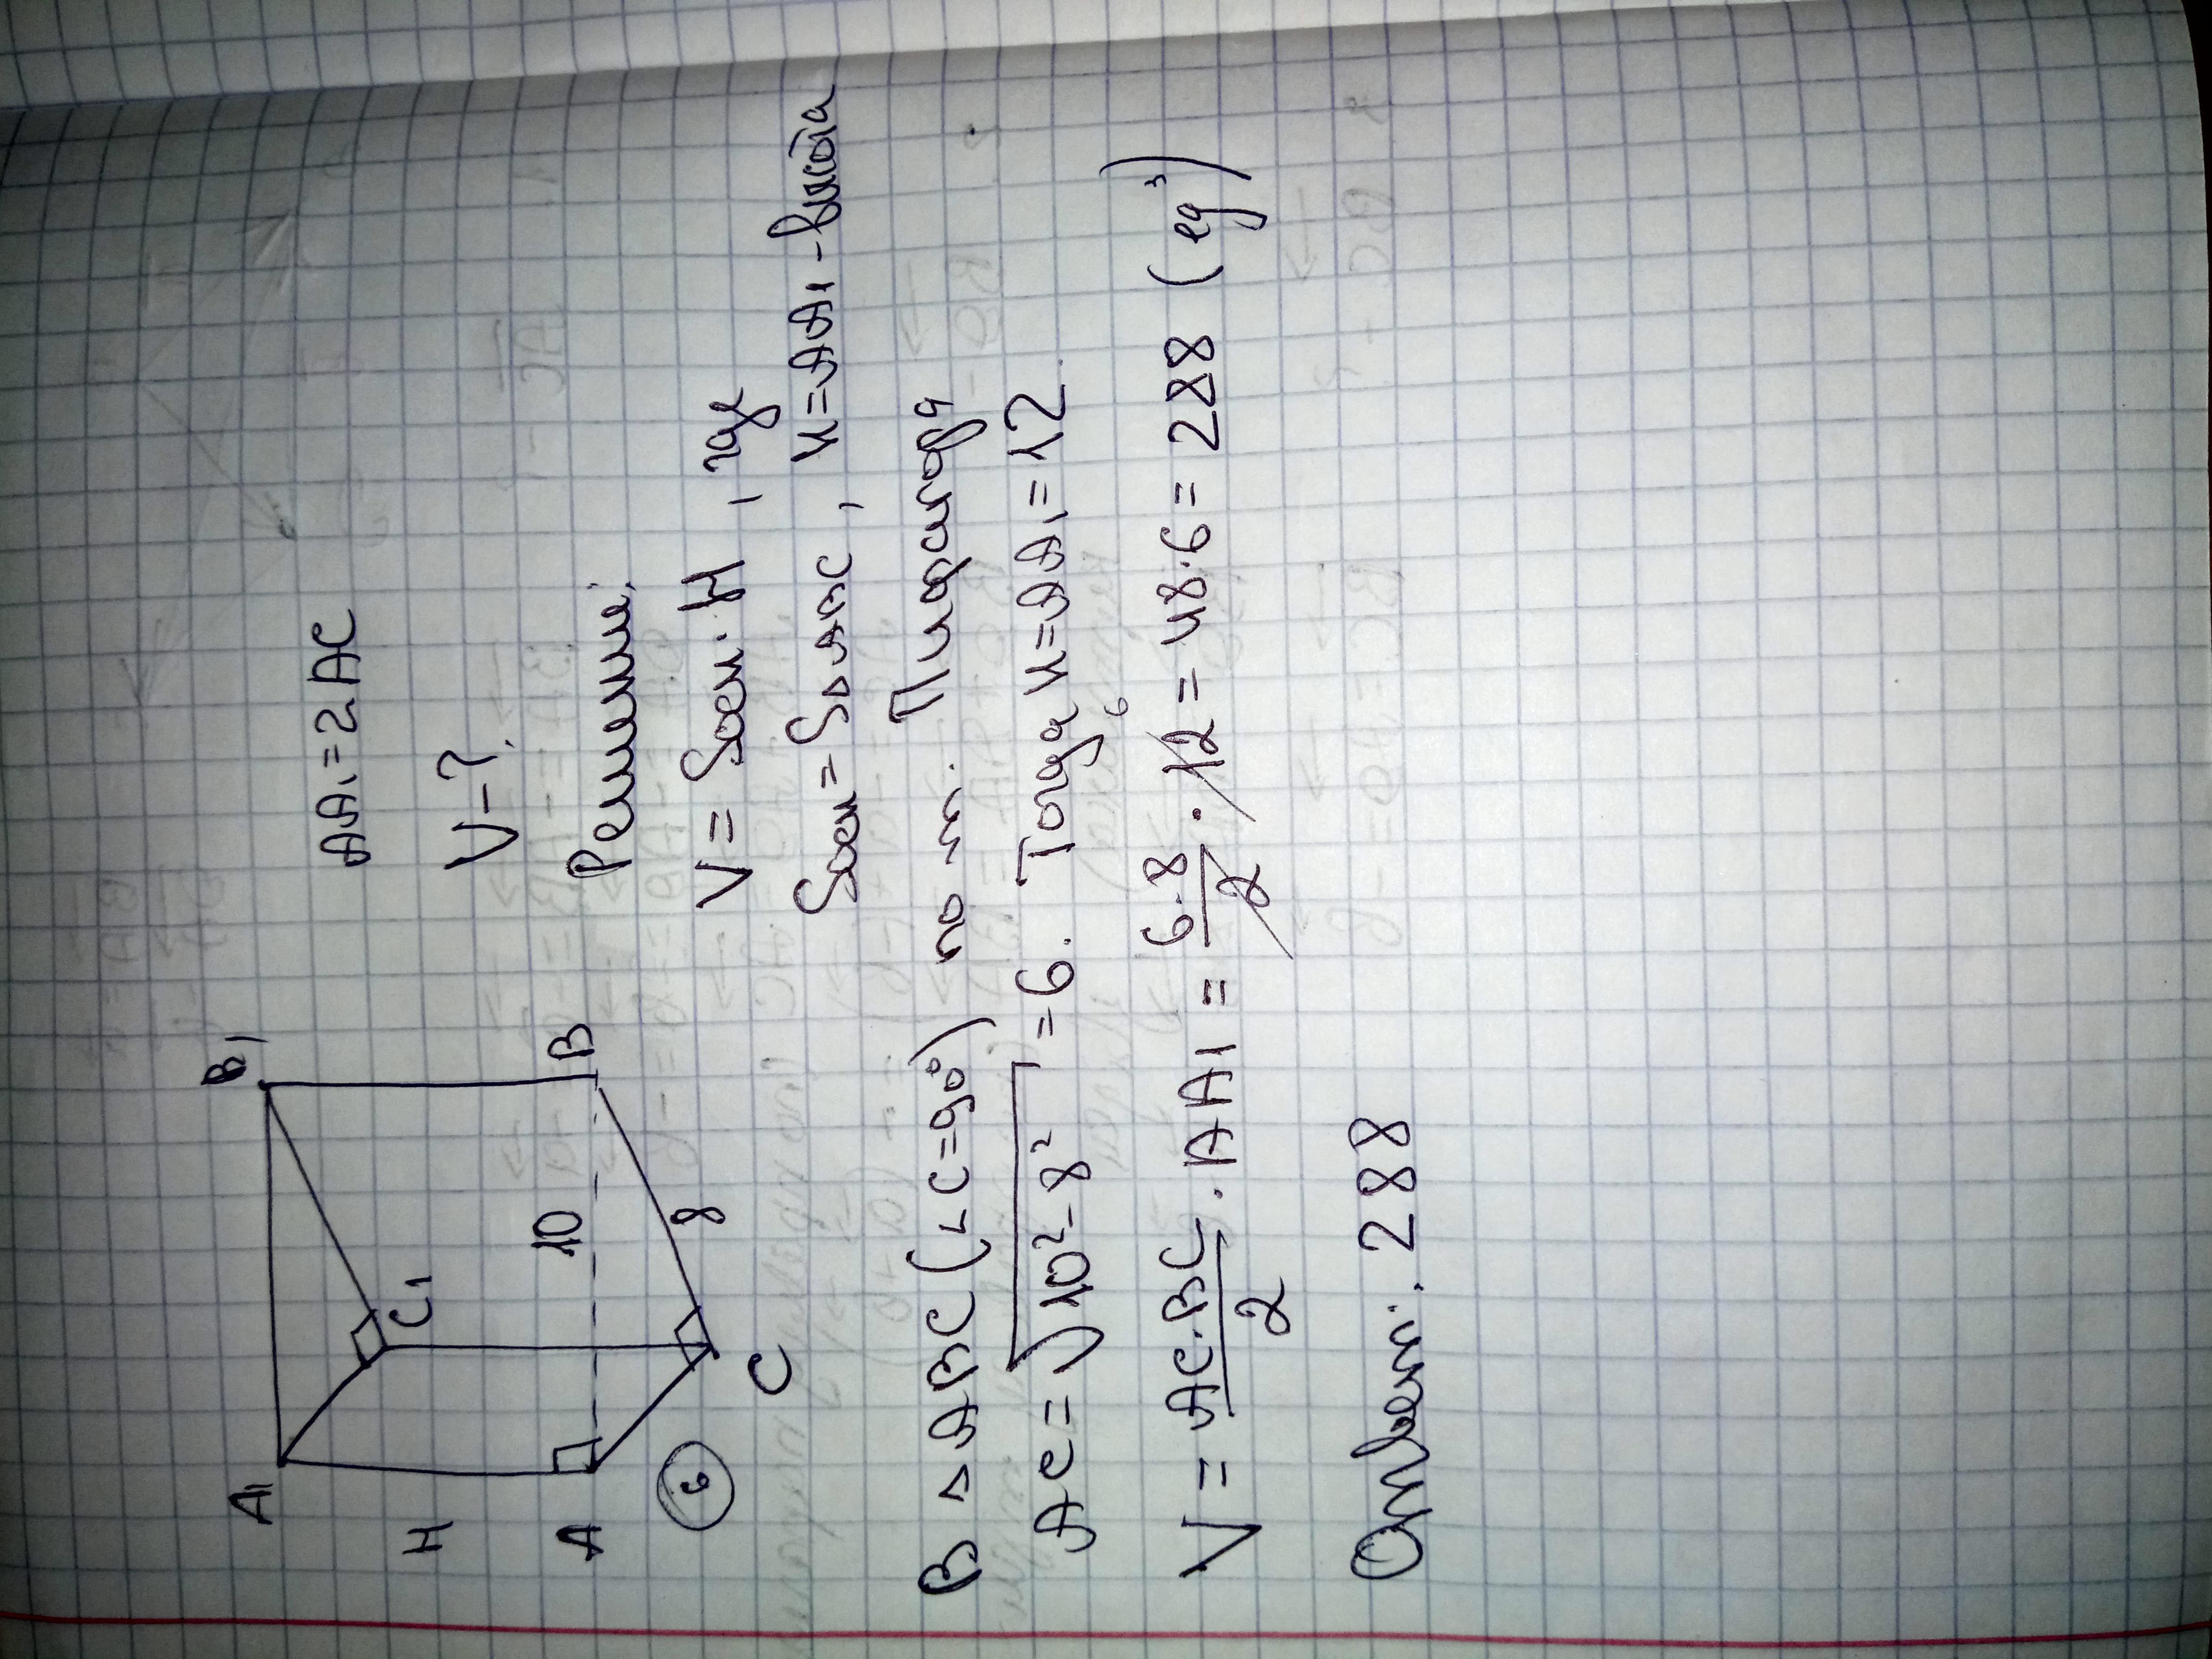 A₁ B₁
C₁
H
10
A B
6 8
C
AA₁ = 2AC
V-?
Решение:
V = Sосн. · H, где
Sосн = S△ABC, H = AA₁ - высота
В △ABC (∠C=90°) по т. Пифагора
AC = √10² - 8² = 6. Тогда H = AA₁ = 12.
V = AC·BC/2 · AA₁ = 6·8/2 · 12 6 = 48·6 = 288 (ед³)
Ответ: 288